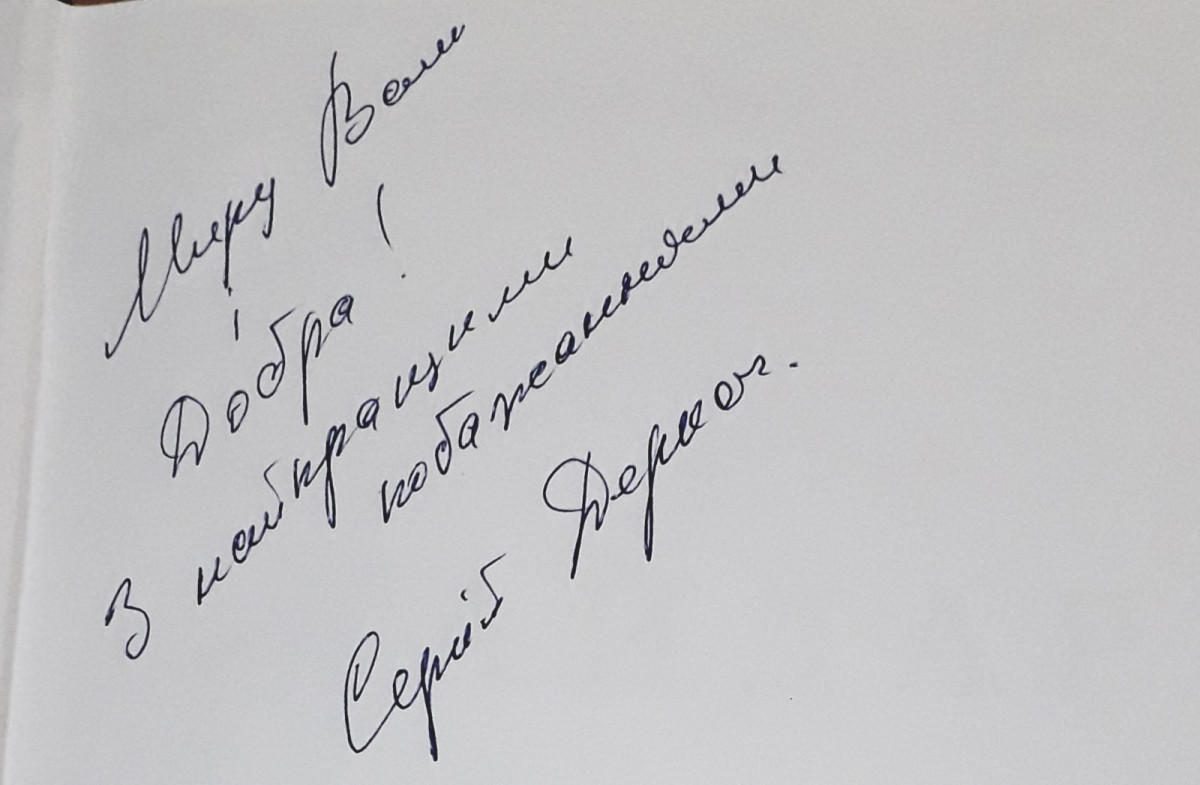 Миру Вам
і
Добра!
З найкращими
побажаннями
Сергій